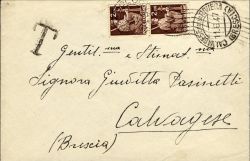 T
Gentil.ma e Stimat.ma
Signora Giuditta Pasinetti
Calvagese
(Brescia)